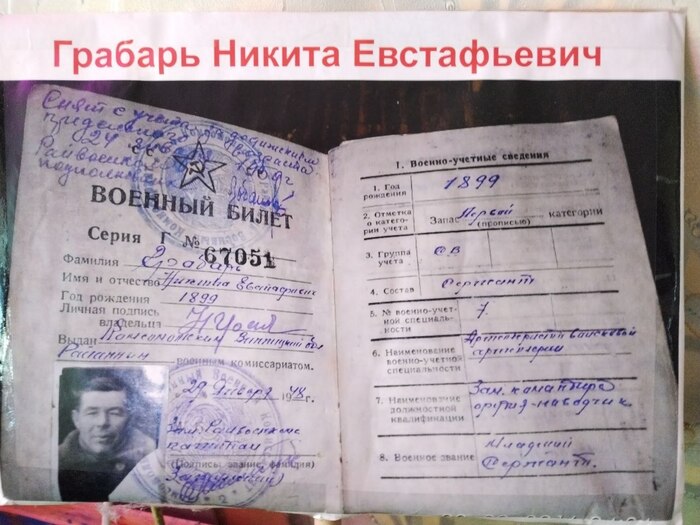 Грабарь Никита Евстафьевич
Снят с учета
24
ВОЕННЫЙ БИЛЕТ
Серия Г № 67051
Фамилия Грабарь
Имя и отчество Никита Евстафьевич
Год рождения 1899
Личная подпись
владельца
Выдан Винницкой обл
военным комиссариатом.
29 Января 1948 г.
капитан
(Подписи звание, фамилия)
I. Военно-учетные сведения
1. Год рождения 1899
2. Отметка о категории учета Запас Первой (прописью) категории
3. Группа учета ОВ
4. Состав Сержант
5. № военно-учетной специальности 7
6. Наименование военно-учетной специальности войсковой артиллерии
7. Наименование должностной квалификации Зам. командира орудия-наводчик
8. Военное звание Младший Сержант.